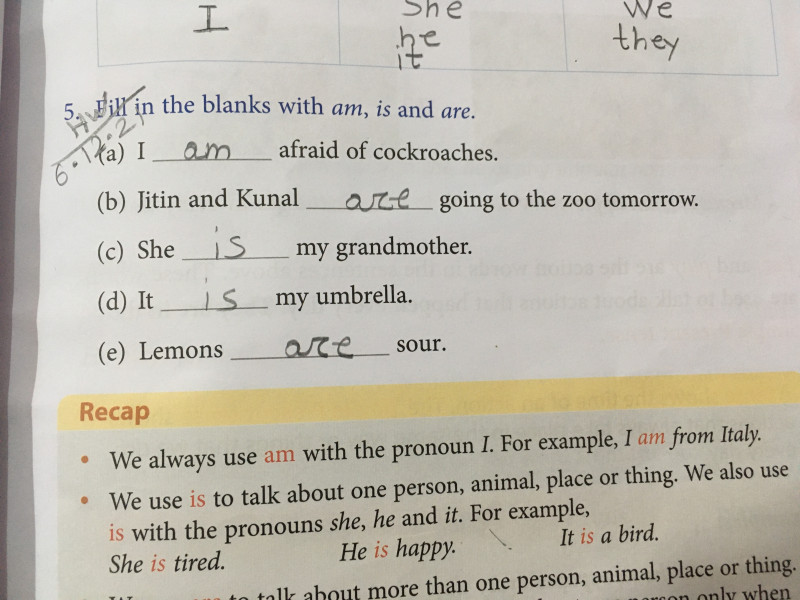 I She We
he they
it
5. Fill in the blanks with am, is and are.
HW
6.12.21
(a) I am afraid of cockroaches.
(b) Jitin and Kunal are going to the zoo tomorrow.
(c) She is my grandmother.
(d) It is my umbrella.
(e) Lemons are sour.
Recap
• We always use am with the pronoun I. For example, I am from Italy.
• We use is to talk about one person, animal, place or thing. We also use
is with the pronouns she, he and it. For example,
She is tired. He is happy. It is a bird.
to talk about more than one person, animal, place or thing.
person only when